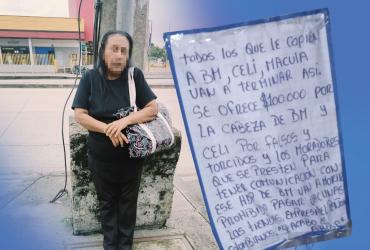 TODOS LOS QUE LE COPIEN
A BM, CELI, MACUIA
VAN A TERMINAR ASI.
SE OFRECE $100.000 POR
LA CABEZA DE BM Y
CELI POR FALSOS Y
TORCIDOS Y LOS MORADORES
QUE SE PRESTEN PARA
TENER COMUNICACIÓN CON
ESE HP DE BM VAN A MORIR
PROHIBIDO PAGAR